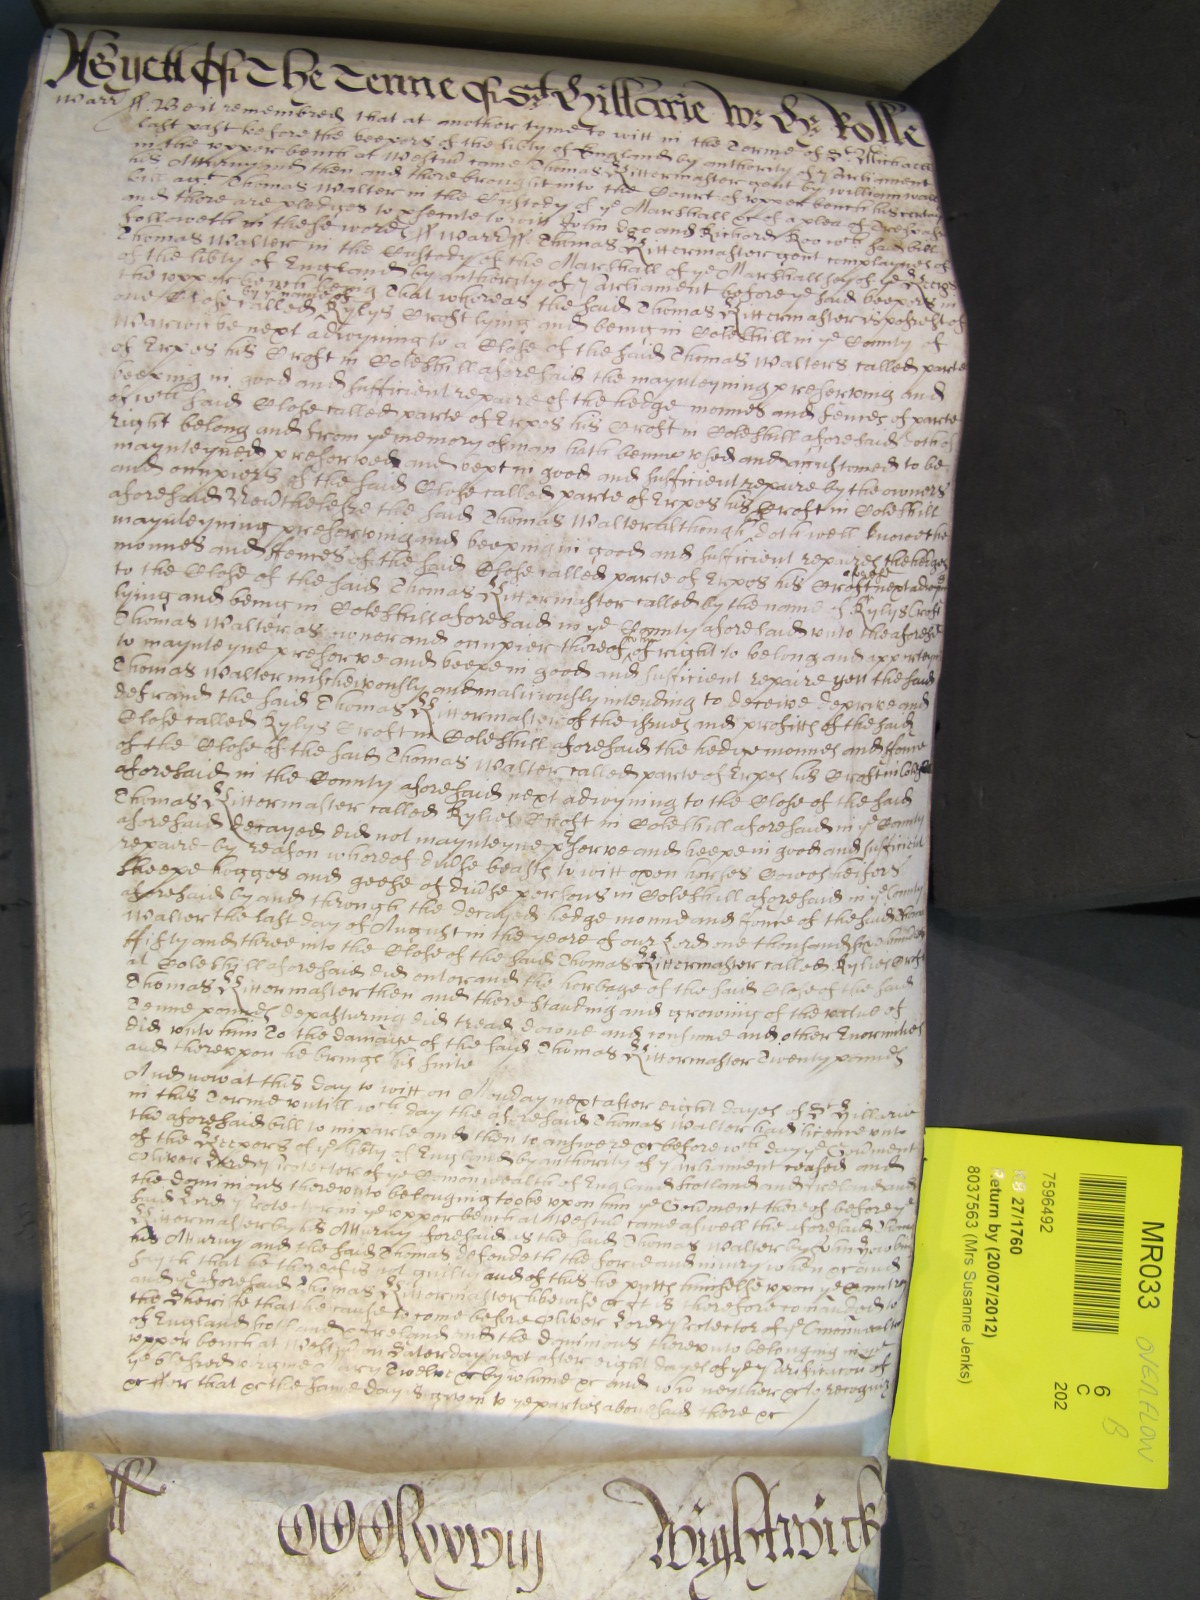 As yett Of The Terme Of St Hillarie Wr. The Rolle
Warr ss. Be it remembred that at another tyme to witt in the Terme of St. Michaell
last past before the keepers of the lib'ty of England by authority of P'liament
in the upper bench at Westm' came Thomas Kittermaster gent by william
his Atturny and then and there brought into the Court of upper bench his certain
bill agt Thomas Walter in the Custody of ye Marshall &c of a plea of Trespasse
and there are pledges to p'secute to witt John Doo and Richard Roo wch said bill
followeth in these words ss Warr ss. Thomas Kittermaster gent complaynes of
Thomas Walter in the Custody of the Marshall of ye Marshallsey of ye Keepers
of the lib'ty of England by authority of P'liament before ye said keepers in
the upper bench being That whereas the said Thomas Kittermaster is possest of
one Close called by ye name of Kylys Croft lying and being in Coleshill in ye County of
Warwicke next adioyning to a Close of the said Thomas Walters called parte
of Erpes his Croft in Coleshill aforesaid the maynteyning preserving and
keeping in good and sufficient repaire of the hedge mounes and fences of parte
of wch said Close called parte of Erpes his Croft in Coleshill aforesaid doth of
right belong and from ye memory of man hath benne used and accustomed to be
maynteyned preserved and kept in good and sufficient repaire by the owners
and occupiers of the said Close called parte of Erpes his Croft in Coleshill
aforesaid Nev'thelesse the said Thomas Walter although doth well know the
maynteyning preserving and keeping in good and sufficient repaires the hedges
mounes and ffences of the said Close called parte of Erpes his Croft next
to the Close of the said Thomas Kittermaster called by the name of Kylys Croft
lying and being in Coleshill aforesaid in ye County aforesaid unto the aforesd
Thomas Walter as owner and occupier thereof of right to belong and
to maynteyne preserve and keepe in good and sufficient repaire yett the said
Thomas Walter mischevously and maliciously intending to deceive deprive and
defraud the said Thomas Kittermaster of the issues and profitts of the said
Close called Kylys Croft in Coleshill aforesaid the hedge mounes and ffence
of the Close of the said Thomas Walter called parte of Erpes his Croft in
aforesaid in the County aforesaid next adioyning to the Close of the said
Thomas Kittermaster called Kylies Croft in Coleshill aforesaid in ye County
aforesaid decayed did not maynteyne p'serve and keepe in good and sufficient
repaire by reason whereof div'se beasts to witt oxen horses Cowes heifers
Sheepe hogges and geese of div'se persons in Coleshill aforesaid in ye County
aforesaid by and through the decayed hedge mound and fence of the said Thomas
Walter the last day of August in the yeare of our Lord one thousand six hundred
ffifty and three into the Close of the said Thomas Kittermaster called Kylies Croft
at Coleshill aforesaid did enter and the herbage of the said Close of the said
Thomas Kittermaster then and there standing and growing of the value of
Tenne pounds depasturing did tread downe and consume and other Enormities
did unto him To the damage of the said Thomas Kittermaster Twenty pounds
and thereuppon he brings his suite
And now at this day to witt on Monday next after eight dayes of St Hillarie
in this Terme untill wch day the aforesaid Thomas Walter had licence unto
the aforesaid bill to imparle and then to answere &c before wch day ye Gov'ment
of the Keepers of ye lib'ty of England by authority of P'liament ceased and
Oliver Lord Protector of ye Comonwealth of England Scotland and Ireland and
the dominions thereunto belonging tooke upon him ye Gov'ment thereof before ye
said Lord Protector in ye upper bench at Westm' came aswell the aforesaid Thomas
Kittermaster by his Atturny aforesaid as the said Thomas Walter by
his Atturny and the said Thomas defendeth the force and iniury when &c and
sayth that he thereof is not guilty and of this he putts himselfe upon ye Country
and ye aforesaid Thomas Kittermaster likewise &c It is therefore comaunded to
the Sheriffe that he cause to come before Oliver Lord Protector of ye Comonwealth
of England Scotland and Ireland and the dominions thereunto belonging in ye
upper bench at Westm' on Saterday next after eight dayes of ye Purificacon of
ye blessed virgine Mary Twelve &c by whome &c and who neyther &c to recogniz
&c for that &c the same day is given to ye parties abovesaid there &c
Wightwick
MR033
OVERFLOW
B
6
C
202
7596492
KB 27/1760
Return by (20/07/2012)
8037563 (Mrs Susanne Jenks)